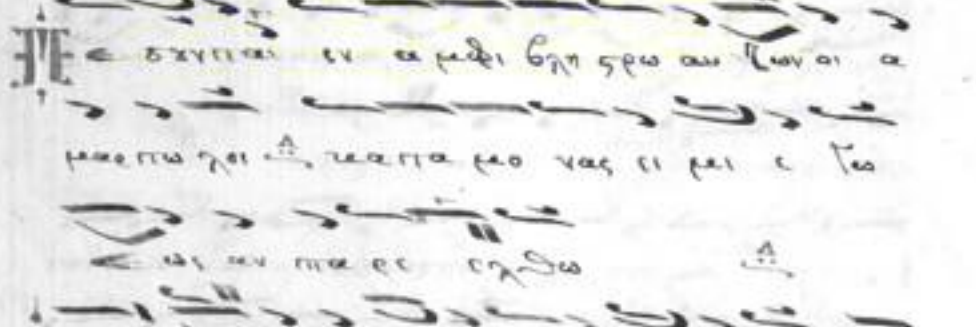 Πε σȣνται εν α μφι βλη ϛρω αυ των οι α
μαρτω λοι κατα μο νας ει μι ε γω
ε ως αν πα ρε ελθω